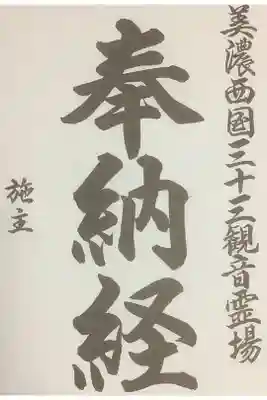 美濃西國三十三観音霊場
奉納経
施主